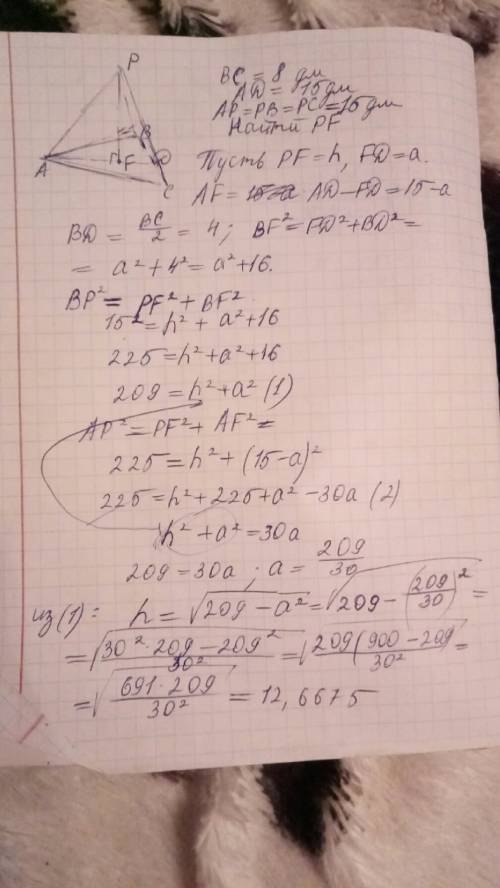 P
B
A
F
D
C
BC = 8 дм
AD = 15 дм
AP = PB = PC = 15 дм
Найти PF
Пусть PF = h, FD = a.
AF = AD - FD = 15 - a
BD = BC/2 = 4; BF² = FD² + BD² =
= a² + 4² = a² + 16.
BP² = PF² + BF²
15² = h² + a² + 16
225 = h² + a² + 16
209 = h² + a² (1)
AP² = PF² + AF² =
225 = h² + (15-a)²
225 = h² + 225 + a² - 30a (2)
h² + a² = 30a
209 = 30a; a = 209/30
из (1): h = √(209 - a²) = √(209 - (209/30)²) =
= √((30²·209 - 209²)/30²) = √(209(900 - 209)/30²) =
= √(691·209/30²) = 12,6675